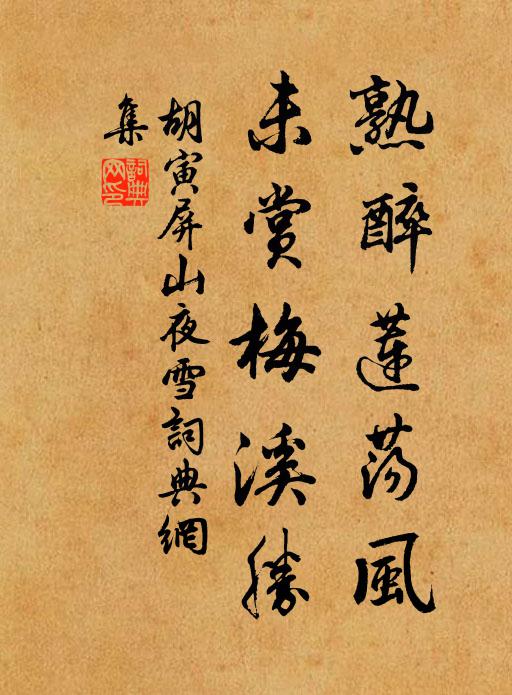 熟醉蓮蕩風
未賞梅溪勝
胡寅屏山夜雪詞典網
集
詞典網印